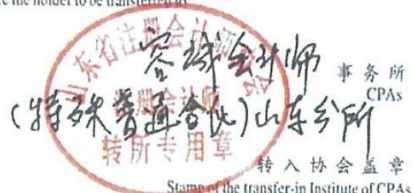 the holder to be transferred to
容诚会计师 事务所
CPAs
(特殊普通合伙)山东分所
山东省注册会计师协会
转所专用章
转入协会盖章
Stamp of the transfer-in Institute of CPAs